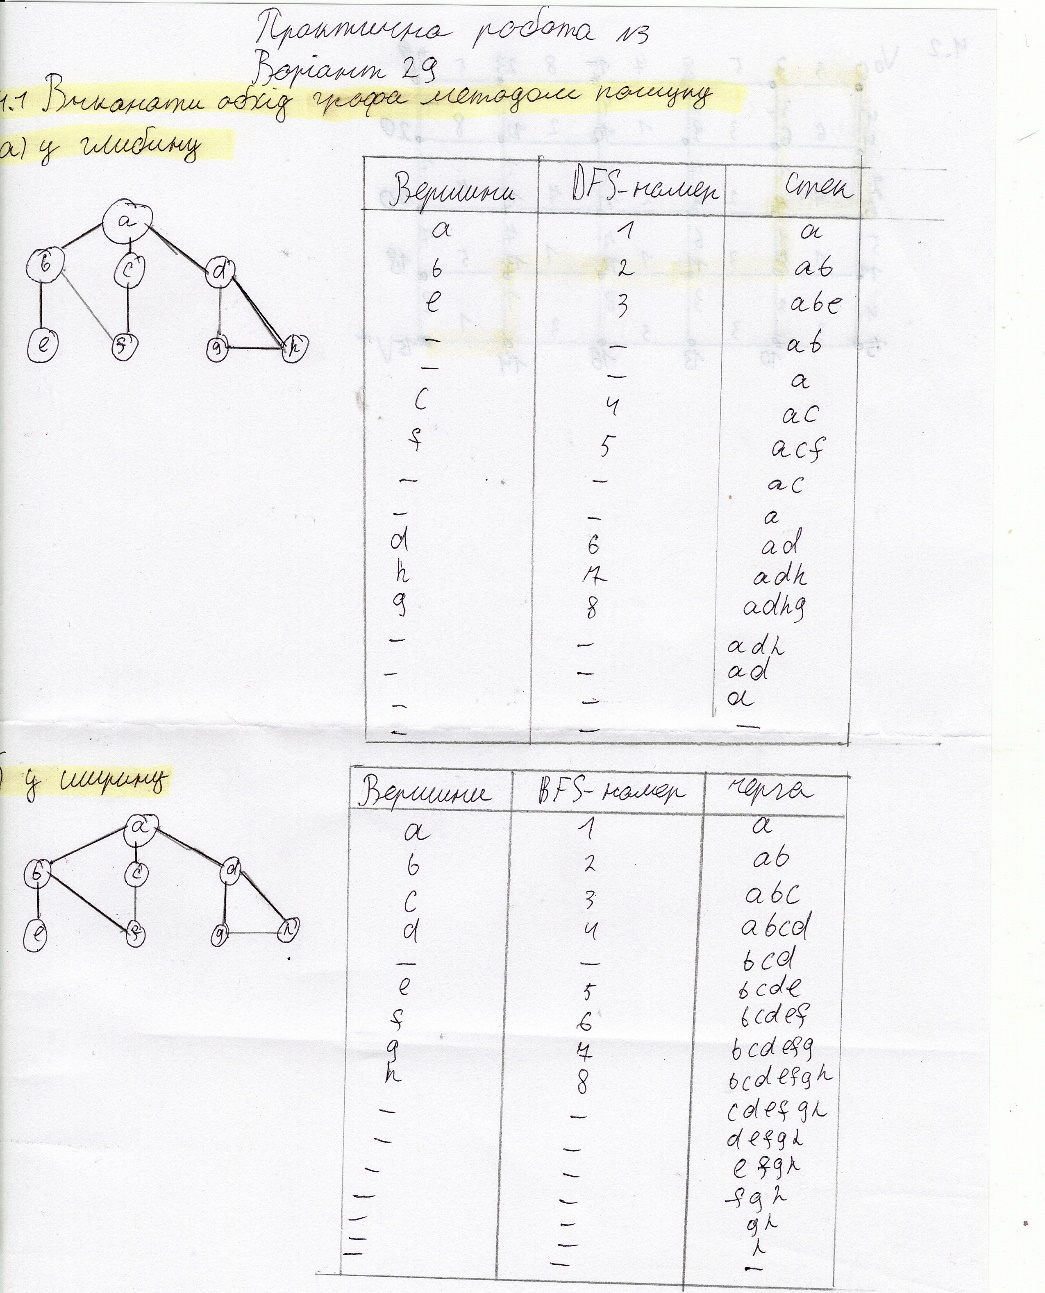 Практична робота №3
Варіант 29
4.1 Виконати обхід графа методом пошуку
а) у глибину
Вершини DFS-номер стек
a 1 a
b 2 ab
e 3 abe
– – ab
– – a
c 4 ac
f 5 acf
– – ac
– – a
d 6 ad
h 7 adh
g 8 adhg
– – adh
– – ad
– – a
– – –
a
b c d
e f g h
) у ширину
Вершини BFS-номер черга
a 1 a
b 2 ab
c 3 abc
d 4 abcd
– – bcd
e 5 bcde
f 6 bcdef
g 7 bcdefg
h 8 bcdefgh
– – cdefgh
– – defgh
– – efgh
– – fgh
– – gh
– – h
– – –
a
b c d
e f g h